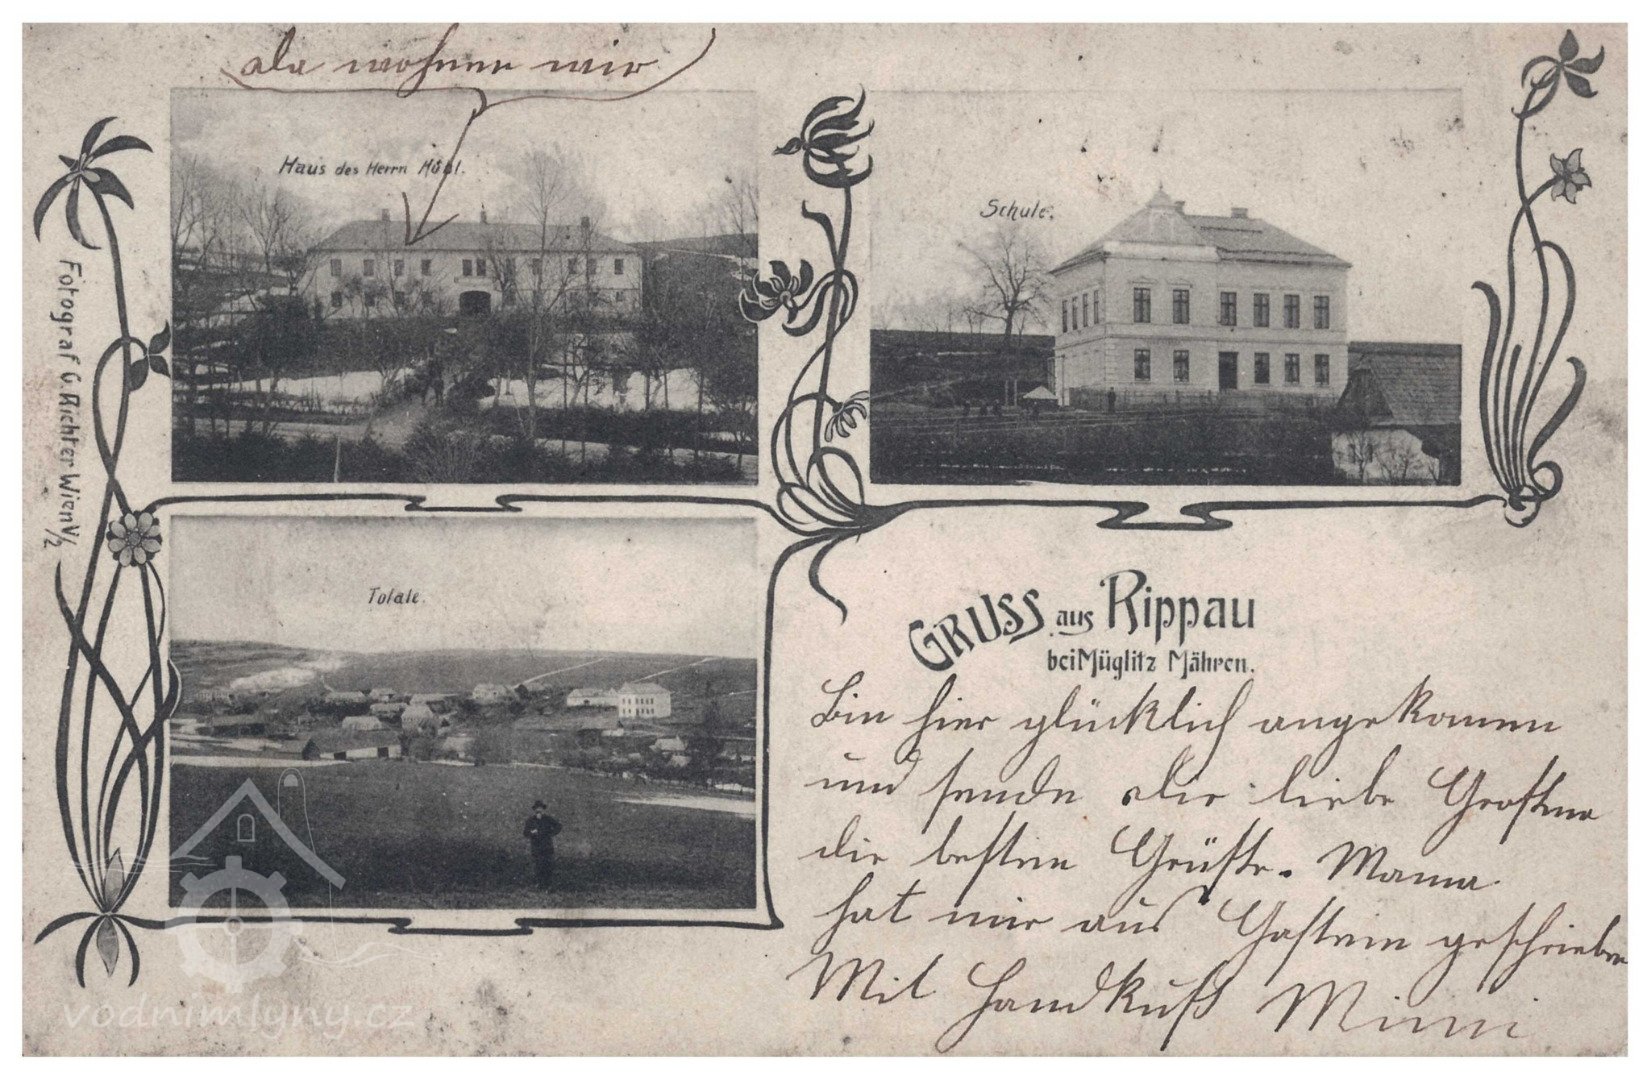 da wohnen wir
Haus des Herrn
Schule.
Fotograf G. Richter Wien V/2
Totale.
GRUSS aus Rippau
bei Müglitz Mähren.
Bin hier glücklich angekommen
und sende dir liebe
die besten Grüße. Mama
hat mir aus Gastein geschrieben
Mit Handkuß Minni
vodnimlyny.cz